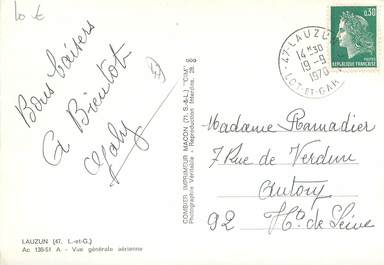 10 €
Bons baisers
A Bientot
47
COMBIER IMPRIMEUR MACON (71. S.-&-L.) "CIM"
Photographie Véritable - Reproduction Interdite. 28.
0,30
REPUBLIQUE FRANÇAISE
47-LAUZUN
14H30
19-9
1970
LOT-ET-GAR
Madame Ramadier
7 Rue de Verdun
Antony
92 Hts de Seine
LAUZUN (47. L.-et-G.)
Ac 136-51 A - Vue générale aérienne